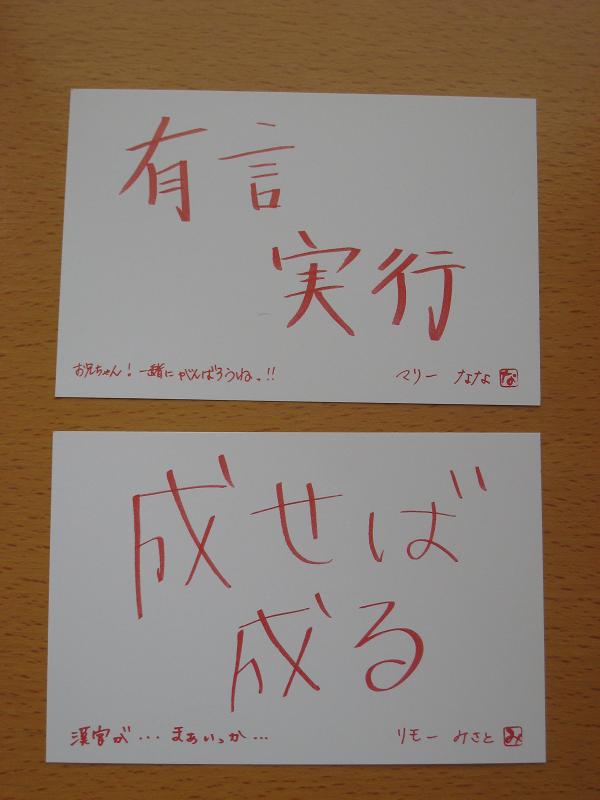 有言
実行
お兄ちゃん！一緒にがんばろうね。!!
マリー なな な
成せば
成る
漢字が・・・まぁいっか・・・
リモー みさと み